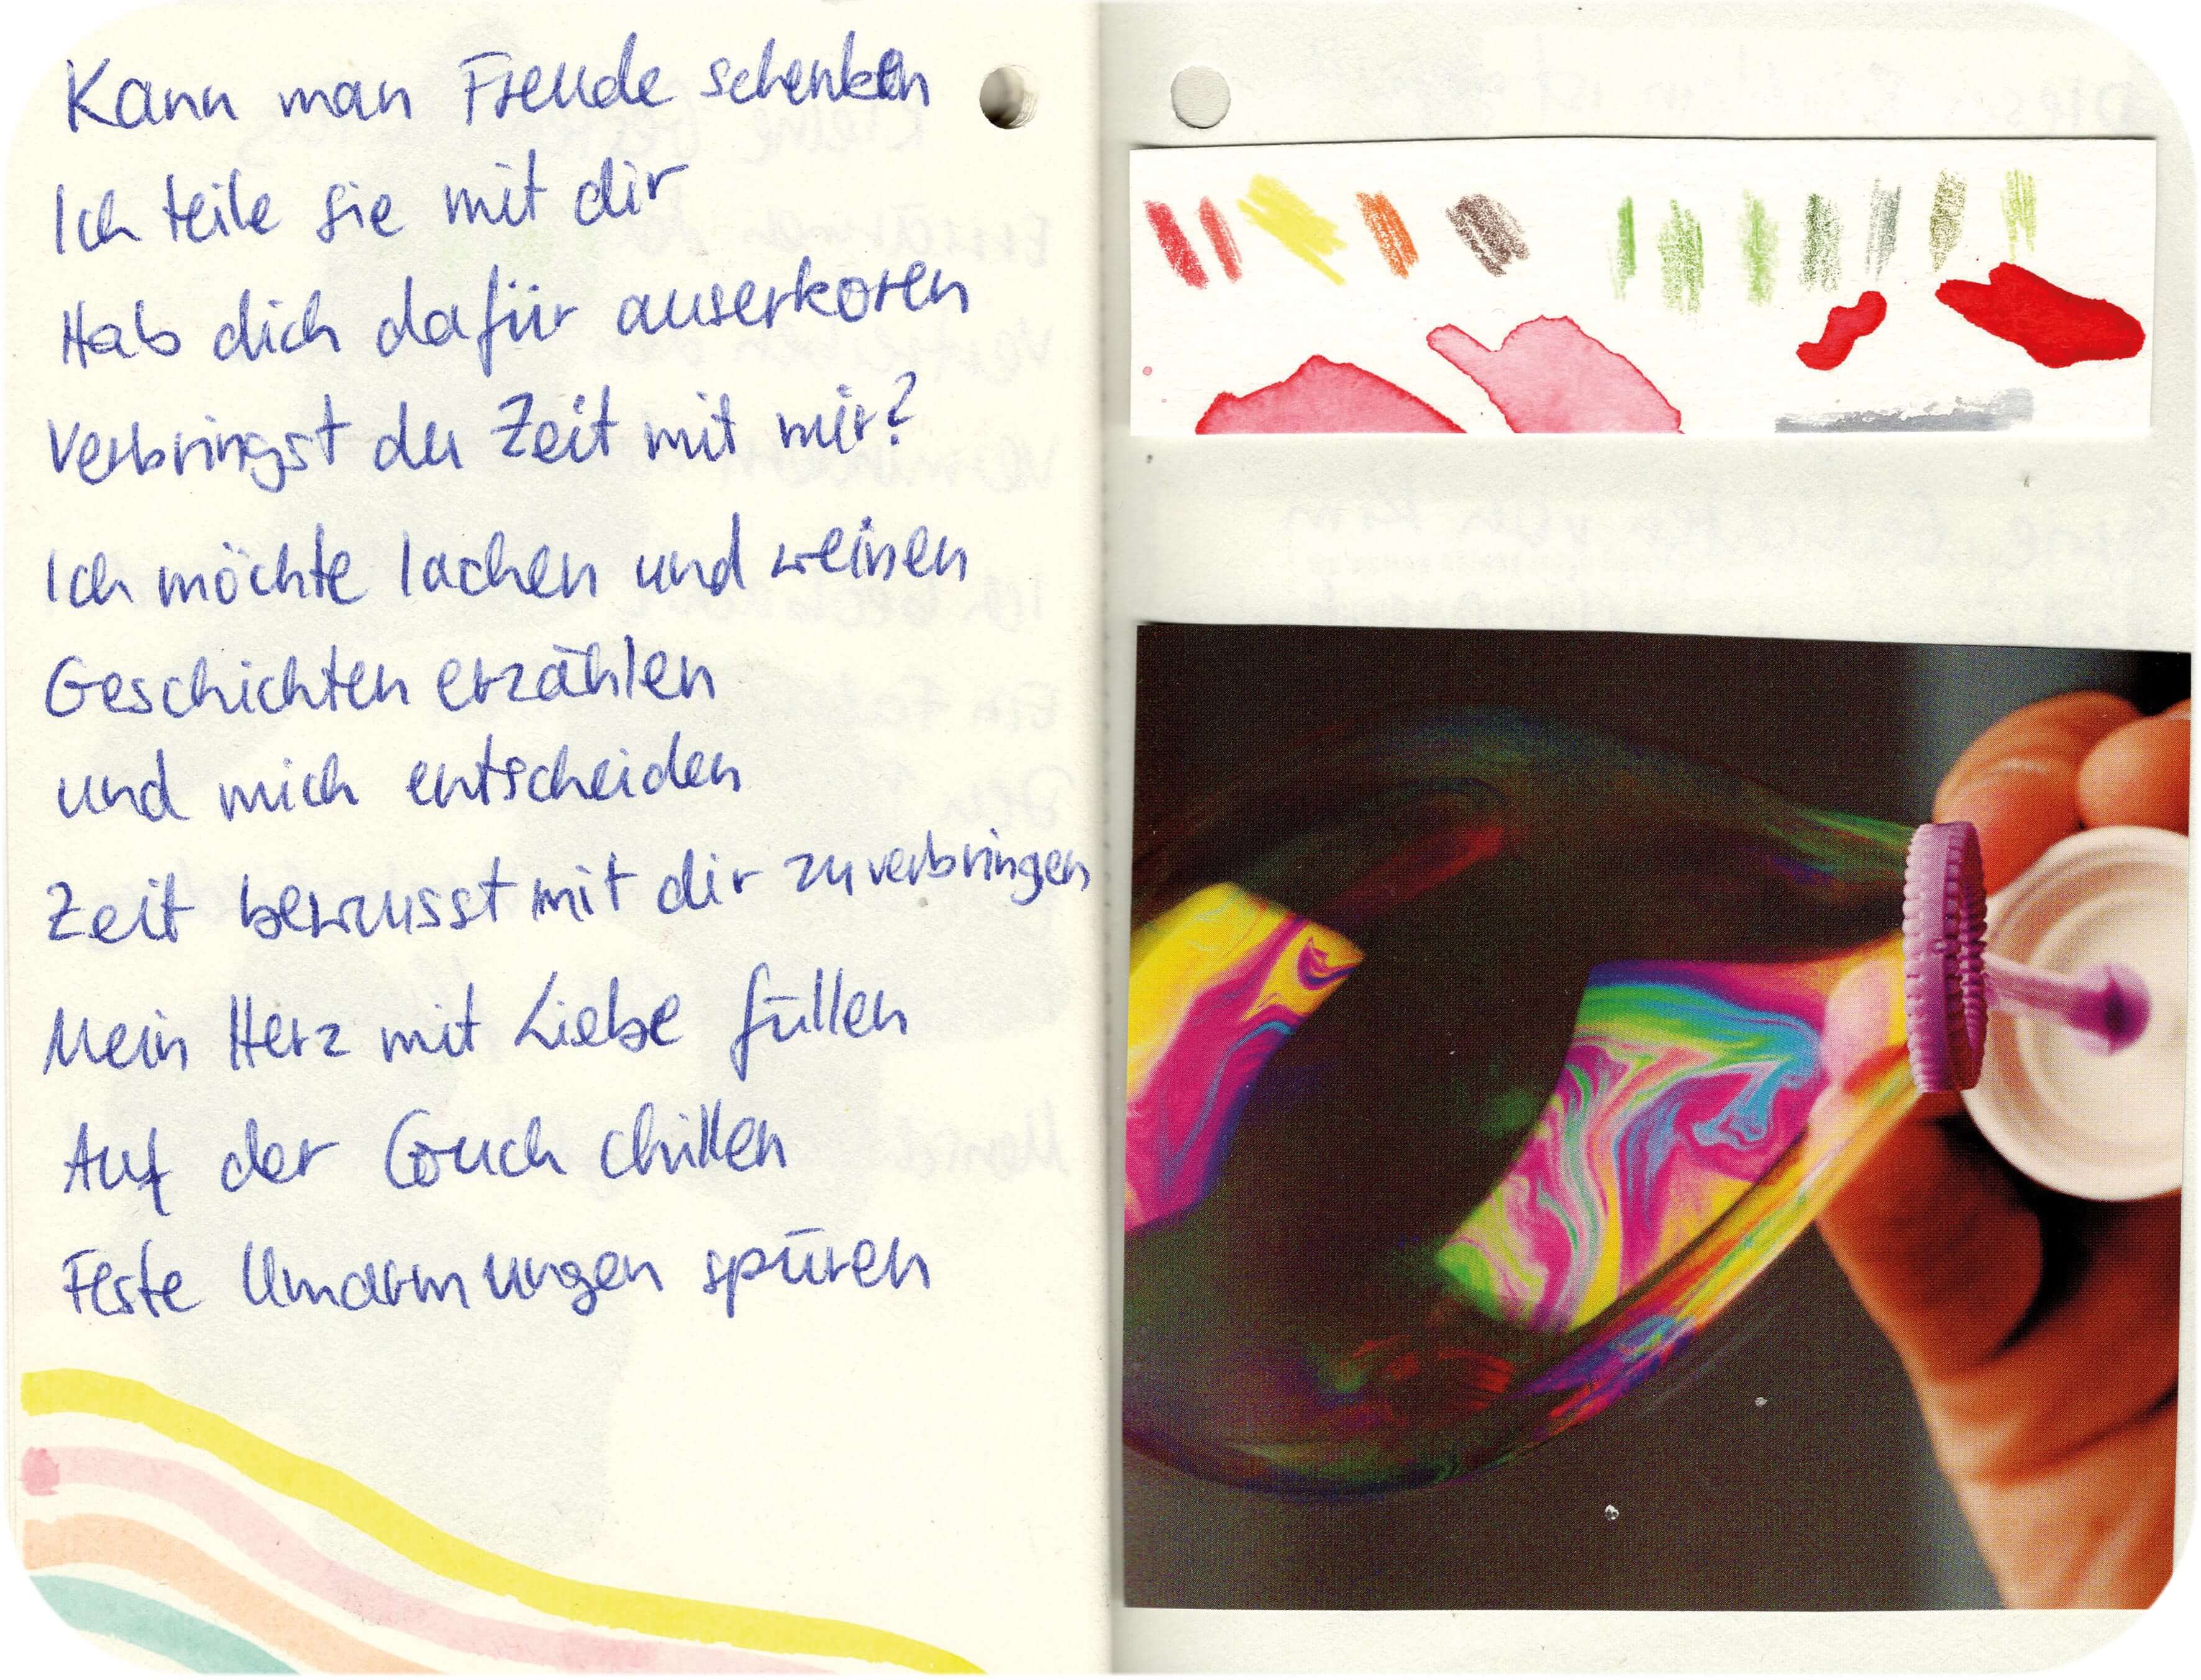 Kann man Freude schenken
Ich teile sie mit dir
Hab dich dafür auserkoren
Verbringst du Zeit mit mir?
Ich möchte lachen und weinen
Geschichten erzählen
und mich entscheiden
Zeit bewusst mit dir zu verbringen
Mein Herz mit Liebe füllen
Auf der Couch chillen
Feste Umarmungen spüren